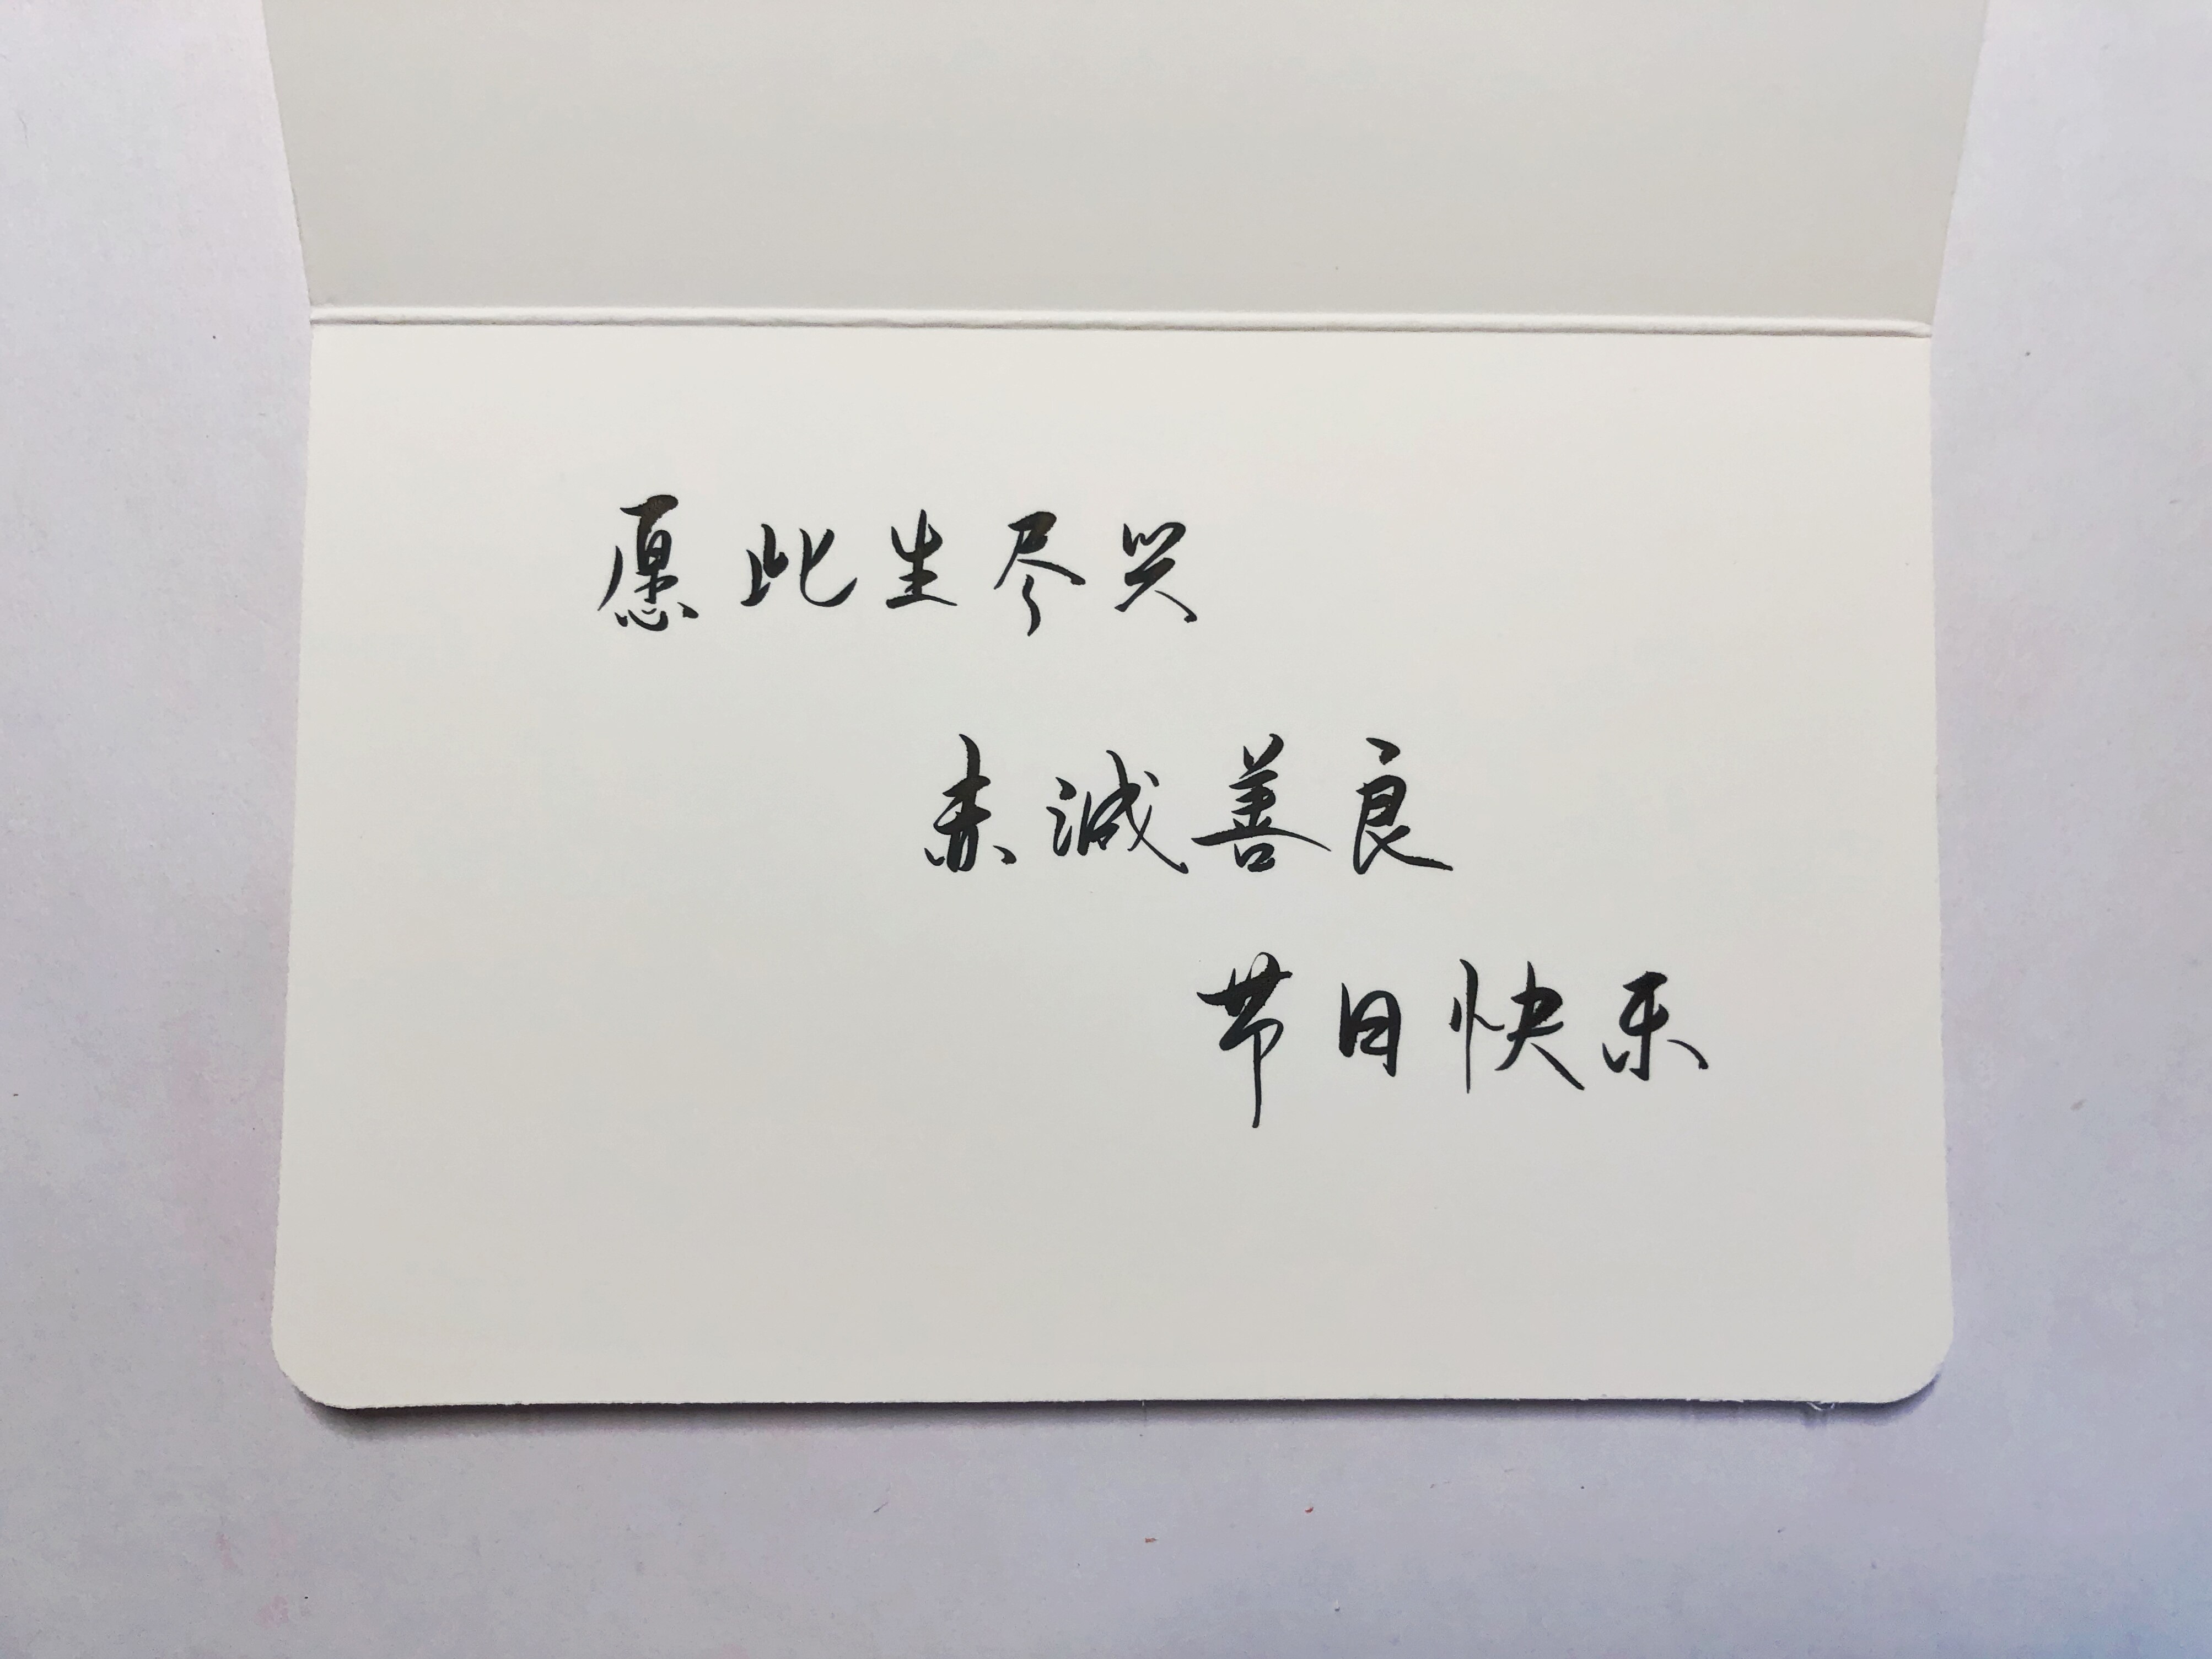 愿此生尽兴
赤诚善良
节日快乐